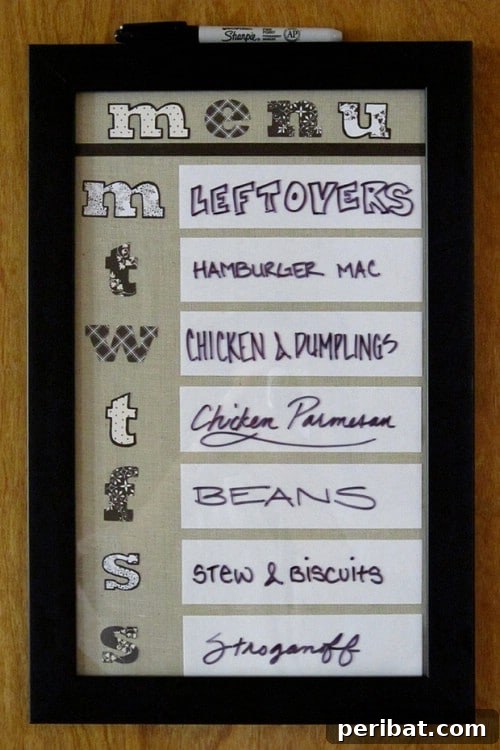 Sharpie AP
menu
m LEFTOVERS
t HAMBURGER MAC
w CHICKEN & DUMPLINGS
t Chicken Parmesan
f BEANS
s STEW & BISCUITS
s Stroganoff
peribat.com